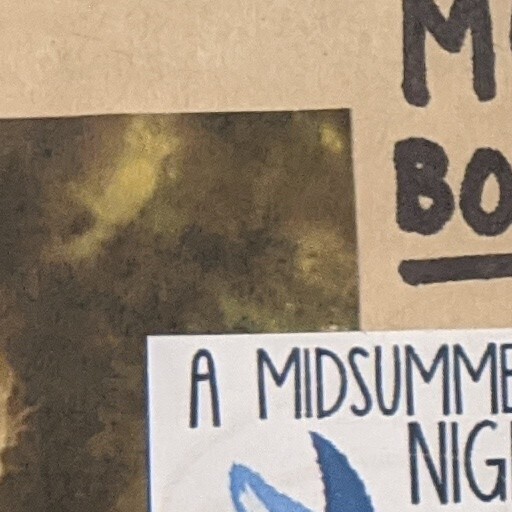 BO
A MIDSUMME
NIG